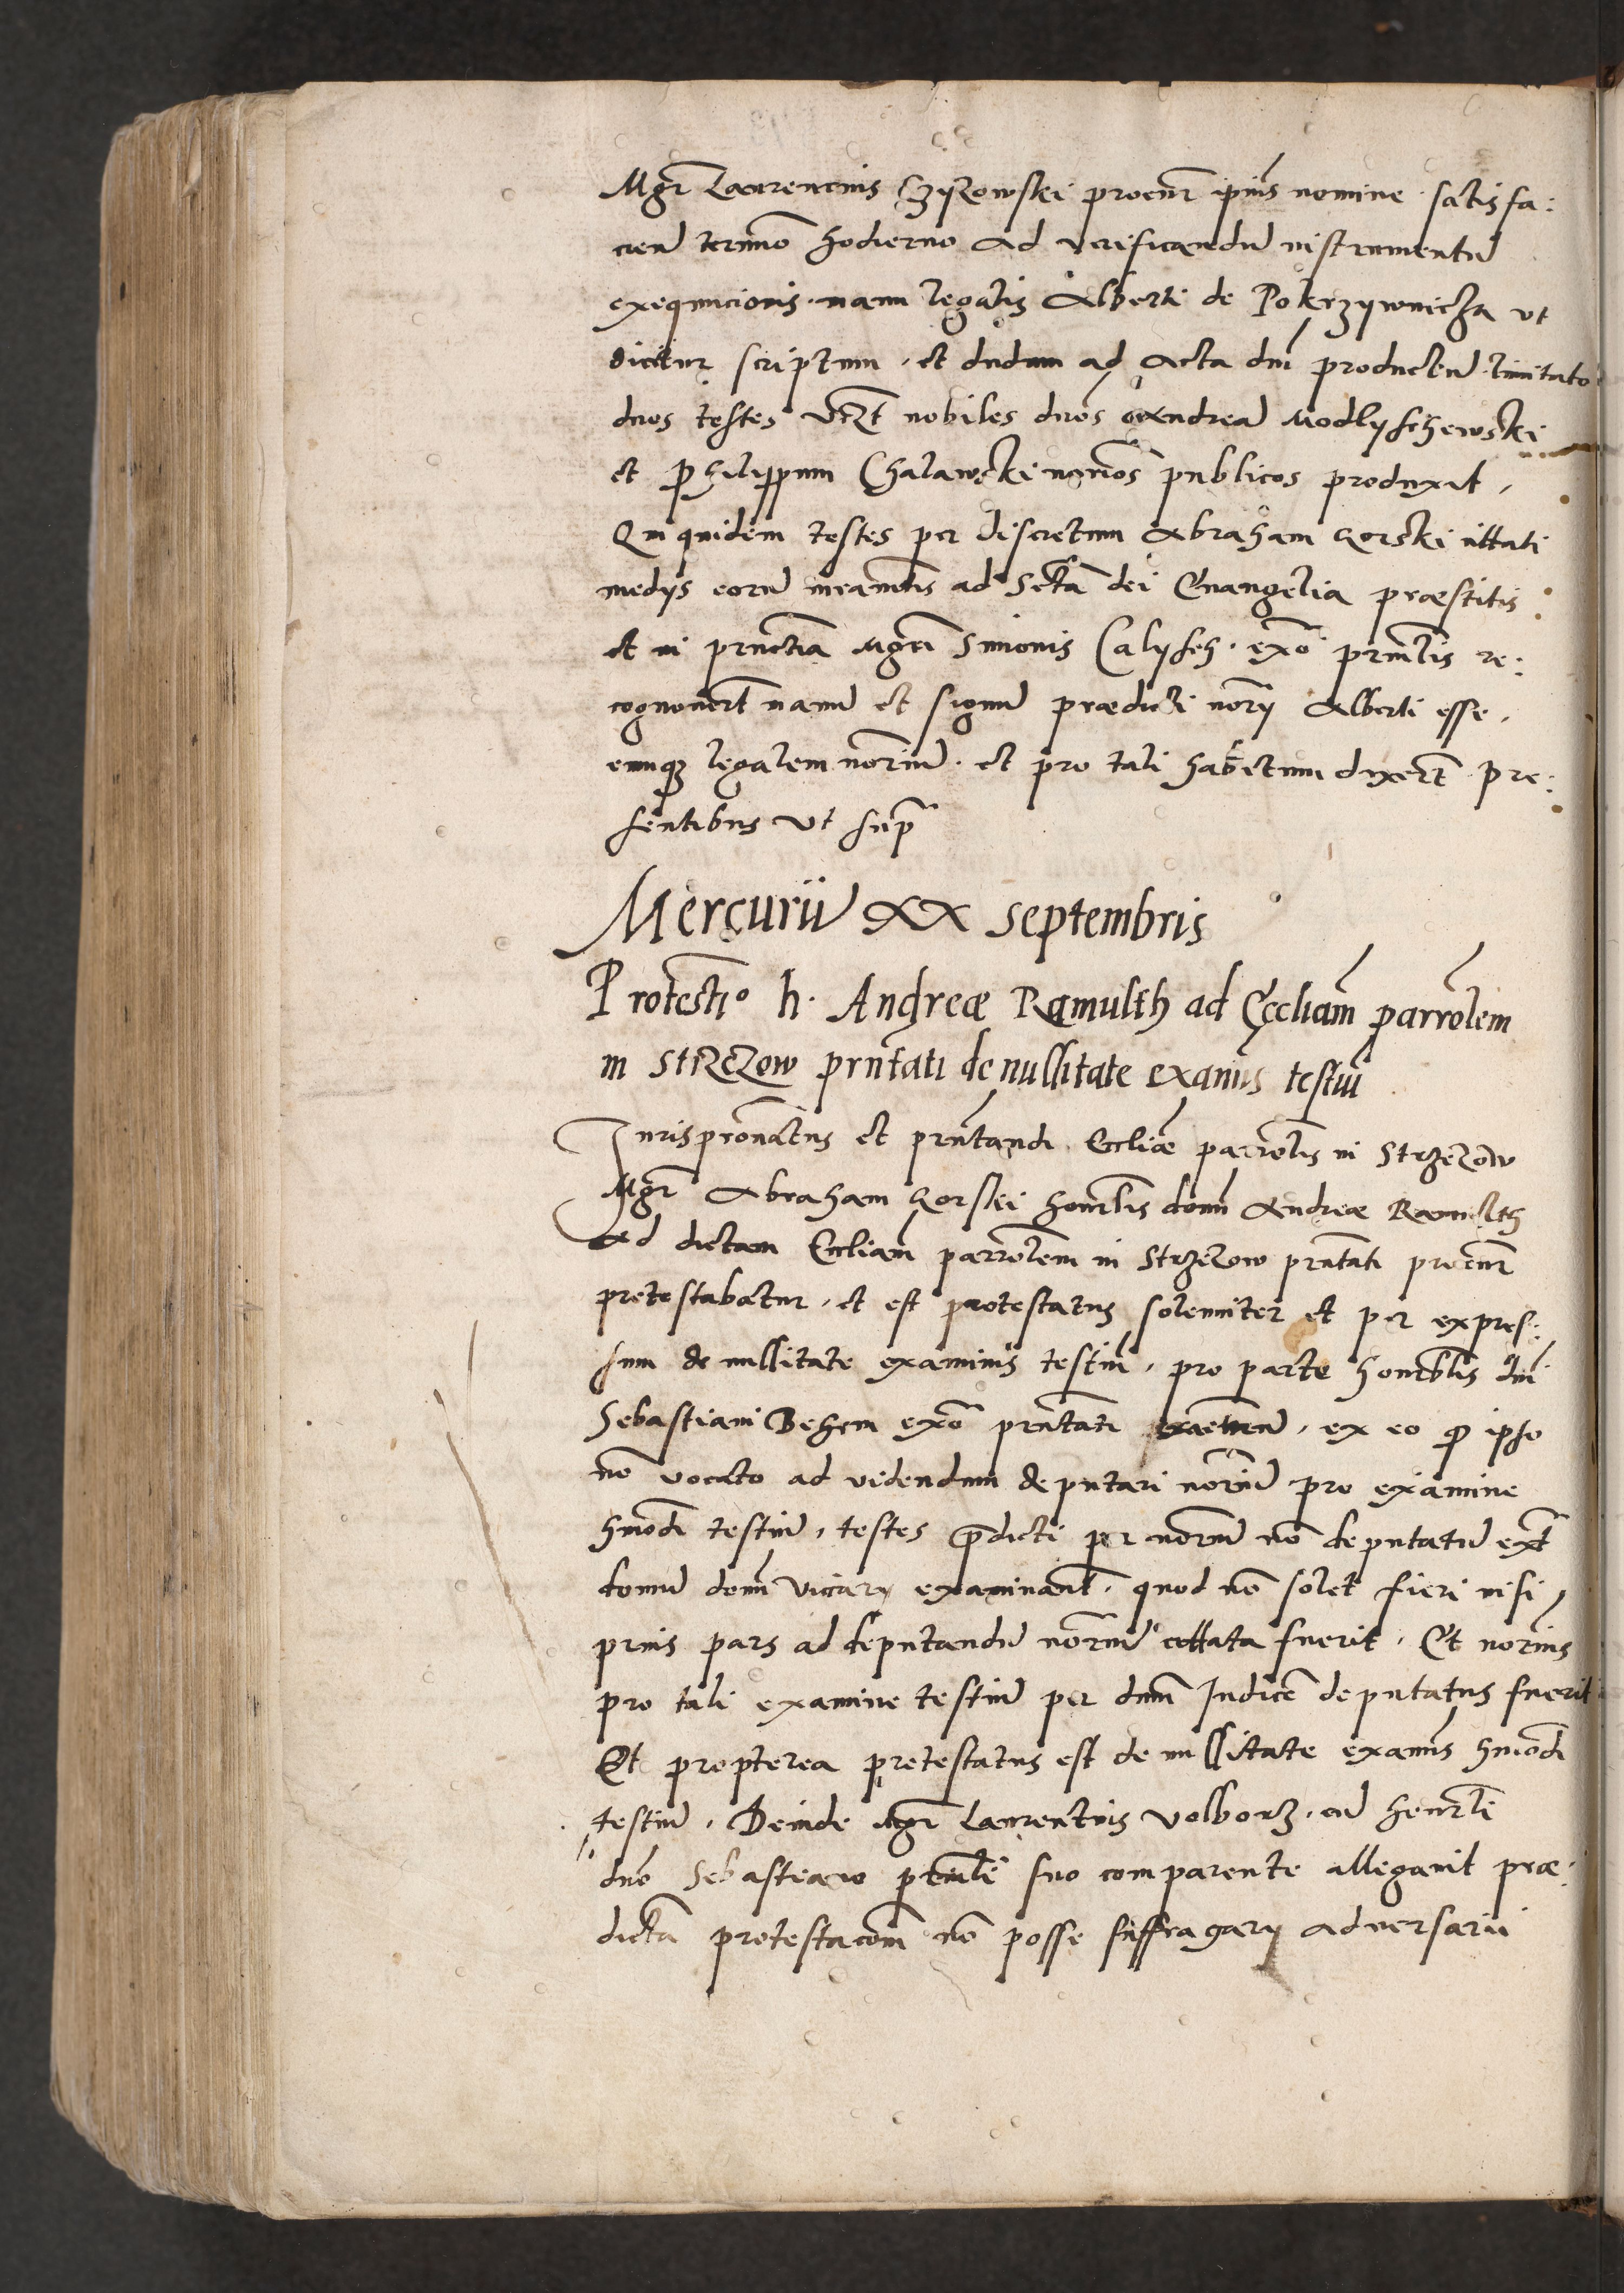 Mgr Laurencius Czyzowski procur ipius nomine satisfa:
cien termio hodierno ad verificandu instrumentu
exequucionis manu legalis Alberti de Pokrzywnicza vt
dicitur scriptum, et dudum ad Acta dni productum
duos testes vzt nobiles dnos Andream Modlyschewski
et Philippum Chalawski norios publicos produxit,
Qui quidem testes per discretum Abraham Gorski cittati
medys eorum iuramtis ad Scta dei Euangelia præstitis
et in prnctia Mgri Simonis Calysch exo prnclis re:
cognouert manu et signu prædicti nory Alberti esse,
eumq legalem noriu et pro tali habitum dixert pre:
sentibus vt supra
Mercurii XX Septembris
Protestio h. Andreæ Ramulth ad Eccliam parrolem
in Strzezow prntati de nullitate examis testiu
Jurispronatus et prntandi Eccliæ parrolis in Strzezow
Mgr Abraham Gorski honrlis domi Andreæ Ramulth
Ad dictam Eccliam parrolem in Strzezow prntati procur
protestabatur, et est protestatus solenniter et per expres:
sum de nullitate examinis testiu, pro parte honrblis dni
Sebastiani Behem exo prntati, ex eo q ipso
no vocato ad videndum deputari noriu pro examine
hmodi testiu, testes prædicti per noriu no deputatu ext
domu domi Vicary examinant, quod no solet fieri nisi
prius pars ad deputandu noriu cittata fuerit, Et norius
pro tali examine testiu per dnm Judice deputatus fuerit
Et propterea protestatus est de nullitate examis hmodi
testiu, Deinde Mgr Laurentius Volborz, cu honrli
dno Sebastiano suo comparente allegauit præ:
dicta protestacom no posse suffragary aduersarii